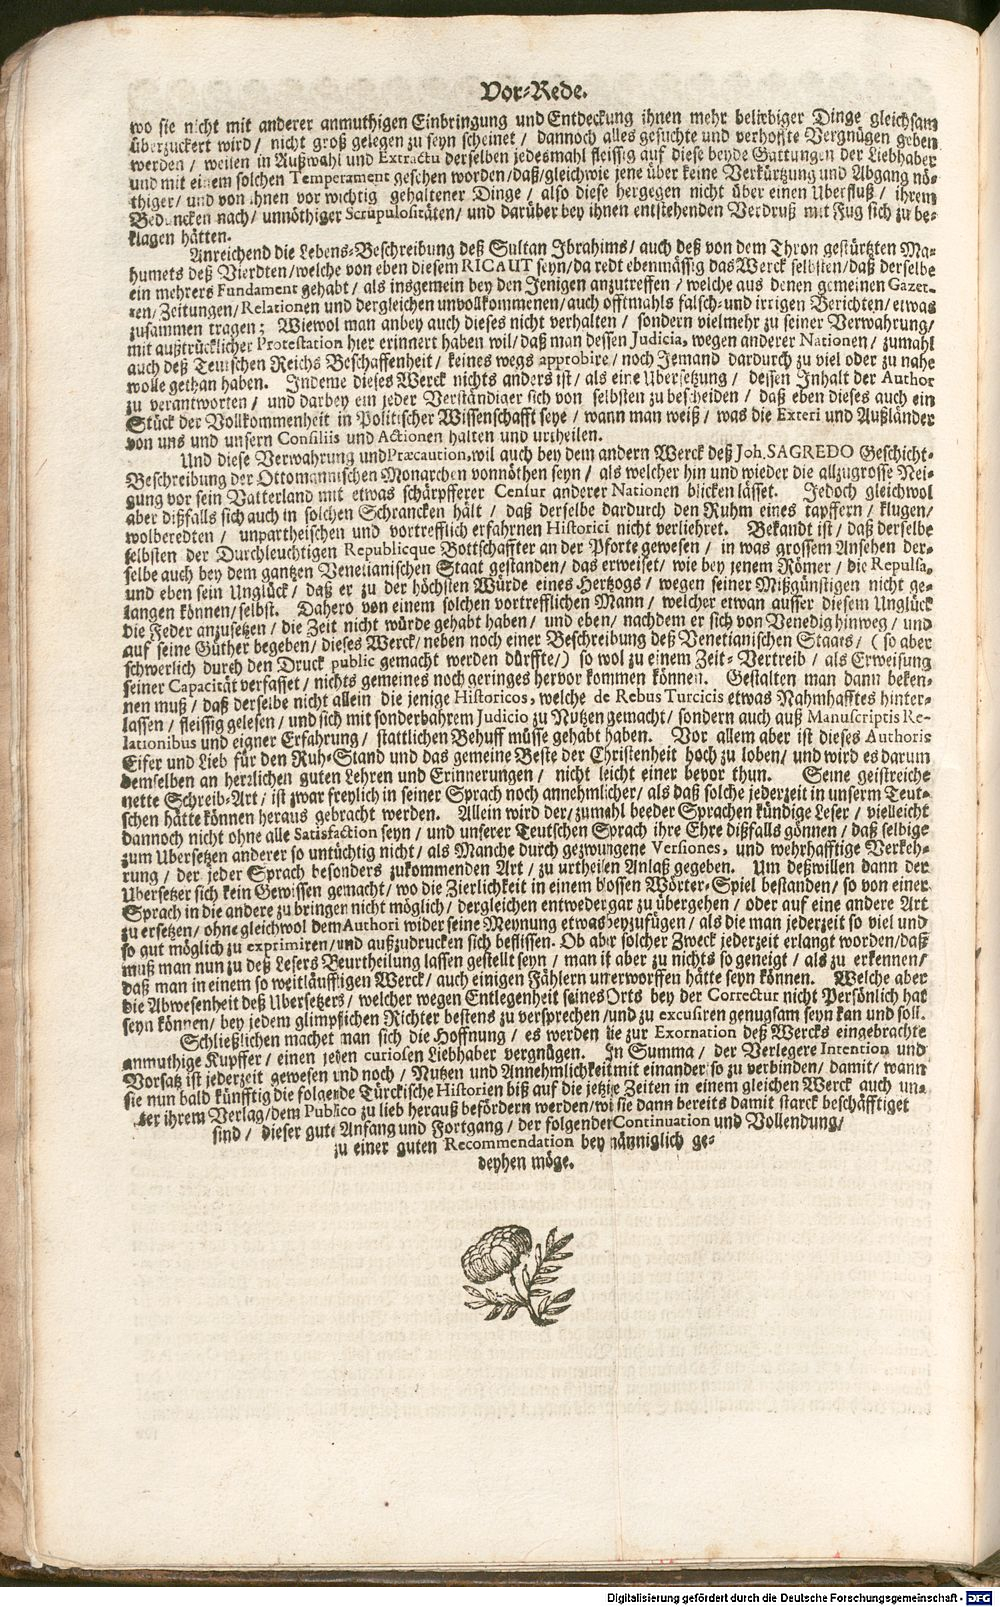 Vor-Rede.
wo sie nicht mit anderer anmuthigen Einbringung und Entdeckung ihnen mehr beliebiger Dinge gleichsam
überzuckert wird / nicht groß gelegen zu seyn scheinet / dannoch alles gesuchte und verhoffte Vergnügen geben
werden / weilen in Außwahl und Extractu derselben jedesmahl fleissig auf diese beyde Gattungen der Liebhaber
und mit einem solchen Temperament gesehen worden / daß / gleichwie jene über keine Verkürtzung und Abgang nö-
thiger / und von ihnen vor wichtig gehaltener Dinge / also diese hergegen nicht über einen Uberfluß / ihrem
Beduncken nach / unnöthiger Scrupulositäten / und darüber bey ihnen entstehenden Verdruß mit Fug sich zu be-
klagen hätten.
Anreichend die Lebens-Beschreibung deß Sultan Ibrahims / auch deß von dem Thron gestürtzten Ma-
humets deß Vierdten / welche von eben diesem RICAUT seyn / da redt ebenmässig das Werck selbsten / daß derselbe
ein mehrers Fundament gehabt / als insgemein bey den Jenigen anzutreffen / welche aus denen gemeinen Gazet-
ten / Zeitungen / Relationen und dergleichen unvollkommenen / auch offtmahls falsch- und irrigen Berichten / etwas
zusammen tragen ; Wiewol man anbey auch dieses nicht verhalten / sondern vielmehr zu seiner Verwahrung /
mit außtrücklicher Protestation hier erinnert haben wil / daß man dessen Judicia, wegen anderer Nationen / zumahl
auch deß Teutschen Reichs Beschaffenheit / keines wegs approbire / noch Jemand dardurch zu viel oder zu nahe
wolle gethan haben. Indeme dieses Werck nichts anders ist / als eine Ubersetzung / dessen Inhalt der Author
zu verantworten / und darbey ein jeder Verständiger sich von selbsten zu bescheiden / daß eben dieses auch ein
Stück der Vollkommenheit in Politischer Wissenschafft seye / wann man weiß / was die Exteri und Außländer
von uns und unsern Consiliis und Actionen halten und urtheilen.
Und diese Verwahrung und Præcaution, wil auch bey dem andern Werck deß Joh. SAGREDO Geschicht-
Beschreibung der Ottomannischen Monarchen vonnöthen seyn / als welcher hin und wieder die allzugrosse Nei-
gung vor sein Vatterland mit etwas schärpfferer Censur anderer Nationen blicken lässet. Jedoch gleichwol
aber dißfalls sich auch in solchen Schrancken hält / daß derselbe dardurch den Ruhm eines tapffern / klugen /
wolberedten / unpartheischen und vortrefflich erfahrnen Historici nicht verliehret. Bekandt ist / daß derselbe
selbsten der Durchleuchtigen Republicque Bottschaffter an der Pforte gewesen / in was grossem Ansehen der-
selbe auch bey dem gantzen Venetianischen Staat gestanden / das erweiset / wie bey jenem Römer / die Repulsa,
und eben sein Unglück / daß er zu der höchsten Würde eines Hertzogs / wegen seiner Mißgünstigen nicht ge-
langen können / selbst. Dahero von einem solchen vortrefflichen Mann / welcher etwan ausser diesem Unglück
die Feder anzusetzen / die Zeit nicht würde gehabt haben / und eben / nachdem er sich von Venedig hinweg / und
auf seine Güther begeben / dieses Werck / neben noch einer Beschreibung deß Venetianischen Staats / ( so aber
schwerlich durch den Druck public gemacht werden dürffte / ) so wol zu einem Zeit-Vertreib / als Erweisung
seiner Capacität verfasset / nichts gemeines noch geringes hervor kommen können. Gestalten man dann beken-
nen muß / daß derselbe nicht allein die jenige Historicos, welche de Rebus Turcicis etwas Nahmhafftes hinter-
lassen / fleissig gelesen / und sich mit sonderbahrem Judicio zu Nutzen gemacht / sondern auch auß Manuscriptis Re-
lationibus und eigner Erfahrung / stattlichen Behuff müsse gehabt haben. Vor allem aber ist dieses Authoris
Eifer und Lieb für den Ruh-Stand und das gemeine Beste der Christenheit hoch zu loben / und wird es darum
demselben an herrlichen guten Lehren und Erinnerungen / nicht leicht einer bevor thun. Seine geistreiche
nette Schreib-Art / ist zwar freylich in seiner Sprach noch annehmlicher / als daß solche jederzeit in unserm Teut-
schen hätte können heraus gebracht werden. Allein wird der / zumahl beeder Sprachen kündige Leser / vielleicht
dannoch nicht ohne alle Satisfaction seyn / und unserer Teutschen Sprach ihre Ehre dißfalls gönnen / daß selbige
zum Ubersetzen anderer so untüchtig nicht / als Manche durch gezwungene Versiones, und wehrhafftige Verkeh-
rung / der jeder Sprach besonders zukommenden Art / zu urtheilen Anlaß gegeben. Um deßwillen dann der
Ubersetzer sich kein Gewissen gemacht / wo die Zierlichkeit in einem blossen Wörter-Spiel bestanden / so von einer
Sprach in die andere zu bringen nicht möglich / dergleichen entweder gar zu übergehen / oder auf eine andere Art
zu ersetzen / ohne gleichwol dem Authori wider seine Meynung etwas beyzufügen / als die man jederzeit so viel und
so gut möglich zu exprimiren / und außzudrucken sich beflissen. Ob aber solcher Zweck jederzeit erlangt worden / daß
muß man nun zu deß Lesers Beurtheilung lassen gestellt seyn / man ist aber zu nichts so geneigt / als zu erkennen /
daß man in einem so weitläufftigen Werck / auch einigen Fählern unterworffen hätte seyn können. Welche aber
die Abwesenheit deß Ubersetzers / welcher wegen Entlegenheit seines Orts bey der Correctur nicht Persönlich hat
seyn können / bey jedem glimpflichen Richter bestens zu versprechen / und zu excusiren genugsam seyn kan und soll.
Schließlichen machet man sich die Hoffnung / es werden die zur Exornation deß Wercks eingebrachte
anmuthige Kupffer / einen jeden curiosen Liebhaber vergnügen. In Summa / der Verlegere Intention und
Vorsatz ist jederzeit gewesen und noch / Nutzen und Annehmlichkeit mit einander so zu verbinden / damit / wann
sie nun bald künfftig die folgende Türckische Historien biß auf die jetzige Zeiten in einem gleichen Werck auch un-
ter ihrem Verlag / dem Publico zu lieb herauß befördern werden / wie sie dann bereits damit starck beschäfftiget
sind / dieser gute Anfang und Fortgang / der folgender Continuation und Vollendung /
zu einer guten Recommendation bey männiglich ge-
deyhen möge.
Digitalisierung gefördert durch die Deutsche Forschungsgemeinschaft - DFG